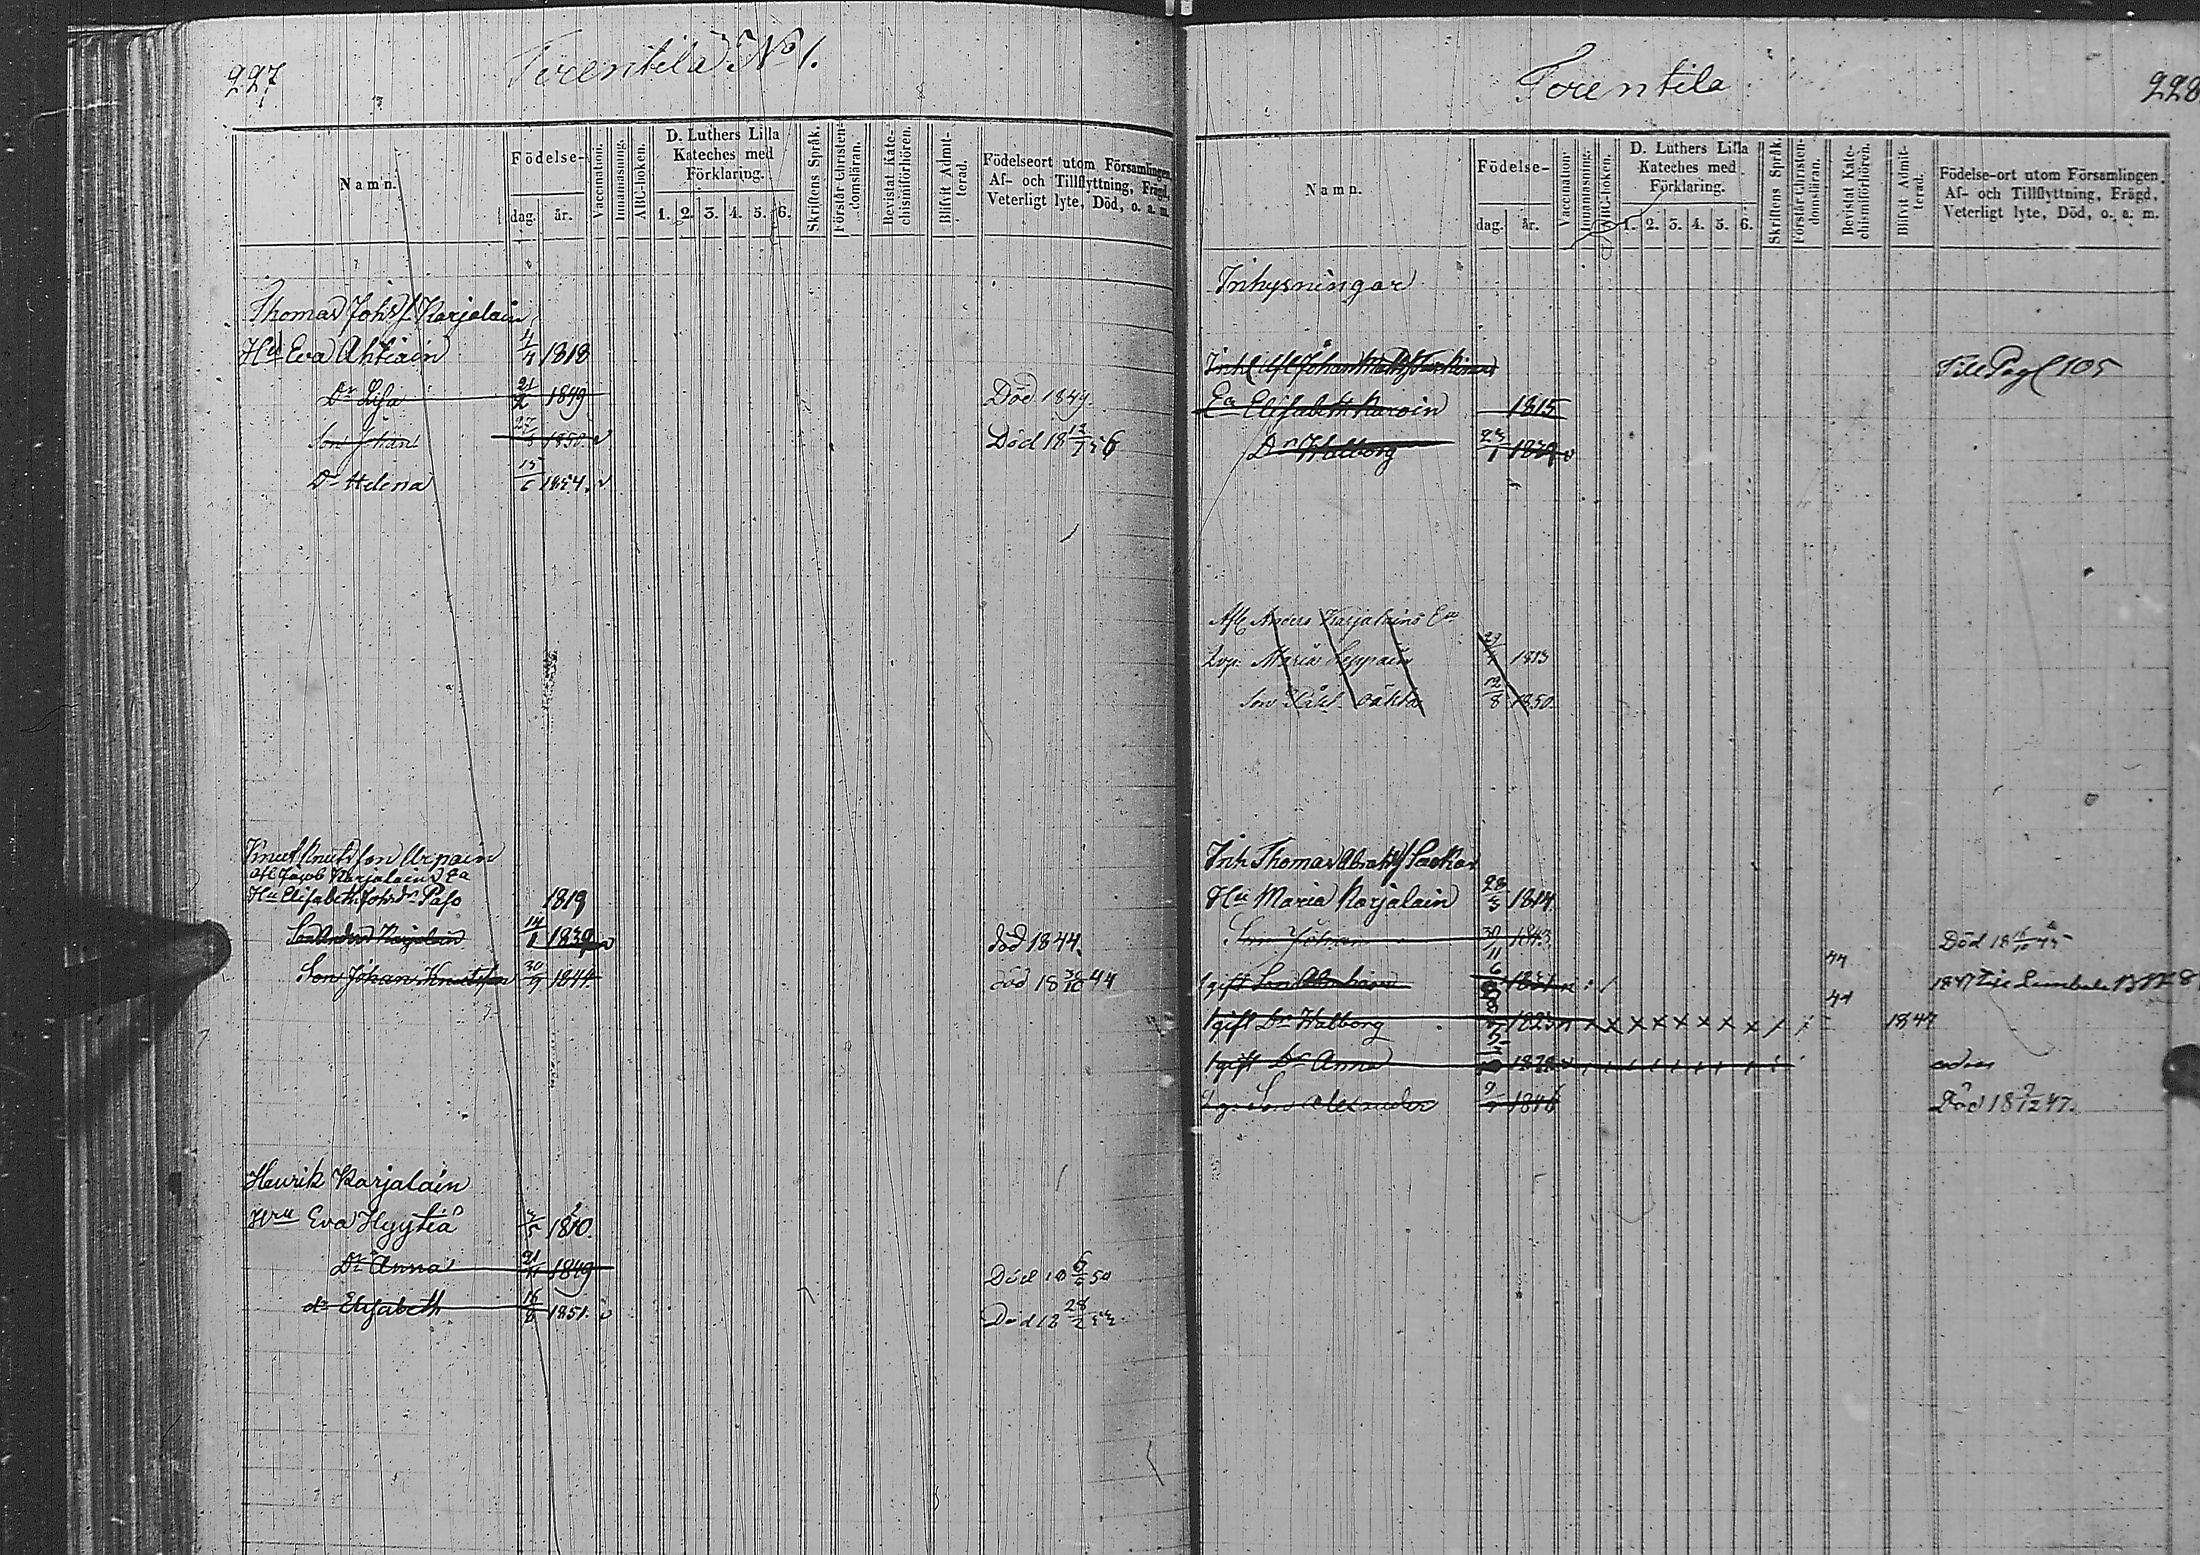 227
Torentila No 1.
Namn.
Födelse-
dag.
år.
Vaccination.
Innanläsning.
ABC-boken.
D. Luthers Lilla
Kateches med
Förklaring.
1. 2. 3. 4. 5. 6.
Skriftens Språk.
Förstår Christen-
domsläran.
Bevistat Kate-
chismiförhören.
Blifvit Admit-
terad.
Födelseort utom Församlingen,
Af- och Tillflyttning, Frägd,
Veterligt lyte, Död, o. a. m.
Thomas Johs f. Karjalain
Hu Eva Ahtiain 4/4 1818
Dr Lisa 21/2 1849 Död 1849.
Son Johan 1850 Död 18 12/7 56
Dr Helena 15/6 1854
Knut Knutsson Urpain
Afl Jacob Karjalains Ea
Hu Elisabeth Johsdr Paso 1819
Son Anders Karjalain 14/1 1839 död 1844.
Son Johan Knutsson 30/9 1844 död 18 30/10 44
Henrik Karjalain
Hru Eva Hyytiä 1810.
Dr Anna 21/11 1849 Död 18 50
dr Elisabeth 16/8 1851. Död 18 28/2 53
228
Torentila
Namn.
Födelse-
dag.
år.
Vaccination.
Innanläsning.
ABC-boken.
D. Luthers Lilla
Kateches med
Förklaring.
1. 2. 3. 4. 5. 6.
Skriftens Språk.
Förstår Christen-
domsläran.
Bevistat Kate-
chismiförhören.
Blifvit Admit-
terad.
Födelse-ort utom Församlingen,
Af- och Tillflyttning, Frägd,
Veterligt lyte, Död, o. a. m.
Inhysningar
Inh Afl Johan Till Pag 105
Ea Elisabeth 1815
Dr Walborg 23/1 1839
Afl Anders Karjalains Ea
Maria Leppain 1813
Son 12/8 1850.
Inh Thomas Abrah f
Hu Maria Karjalain 28/3 1814
Son Johan 30/11 1843 Död 18 45
1 gift Son Abraham 1831 44 1847
1 gift Dr Walborg 1825 x x x x x x x 44 1847
1 gift Dr Anna
2 g: Son Alexander 1846 Död 18 9/12 47.